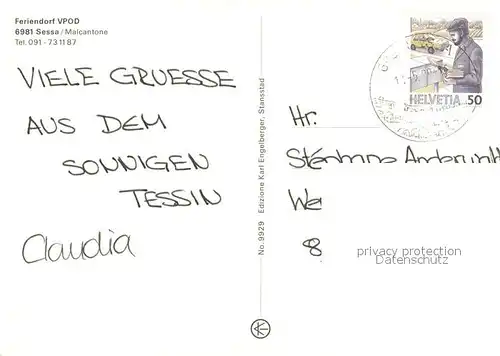 Feriendorf VPOD
6981 Sessa / Malcantone
Tel. 091 - 73 11 87
VIELE GRUESSE
AUS DEM
SONNIGEN
TESSIN
Claudia
No. 9929 Edizione Karl Engelberger, Stansstad
HELVETIA 50
Hr.
We
8
privacy protection
Datenschutz